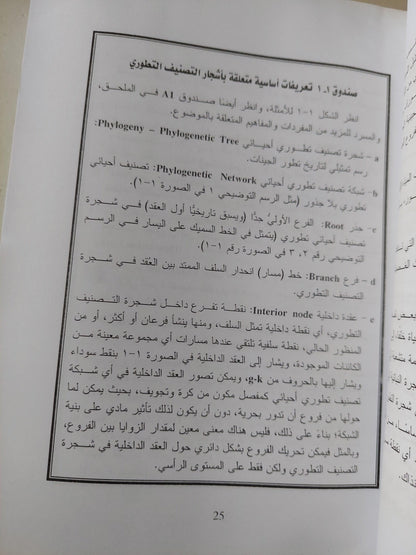 صندوق ١-١ تعريفات أساسية متعلقة بأشجار التصنيف التطوري
انظر الشكل ١-١ للأمثلة، وانظر أيضا صندوق A1 في الملحق،
والمسرد للمزيد من المفردات والمفاهيم المتعلقة بالموضوع.
a – شجرة تصنيف تطوري أحيائي Phylogeny – Phylogenetic Tree:
رسم تمثيلي لتاريخ تطور الجينات.
b – شبكة تصنيف تطوري أحيائي Phylogenetic Network: تصنيف أحيائي
تطوري بلا جذور (مثل الرسم التوضيحي ١ في الصورة ١-١).
c – جذر Root: الفرع الأوليُّ جدًّا (ويسبق تاريخيًّا أول العقد) في شجرة
تصنيف أحيائي تطوري (يتمثل في الخط السميك على اليسار في الرسم
التوضيحي رقم ٢، ٣ في الصورة رقم ١-١).
d – فرع Branch: خط (مسار) انحدار السلف الممتد بين العُقد في شجرة
التصنيف التطوري.
e – عقدة داخلية Interior node: نقطة تفرع داخل شجرة التصنيف
التطوري، أي نقطة داخلية تمثل السلف، ومنها ينشأ فرعان أو أكثر، أو من
المنظور الحالي، نقطة سلفية تلتقي عندها مسارات أي مجموعة معينة من
الكائنات الموجودة، ويشار إلى العقد الداخلية في الصورة ١-١ بنقط سوداء
ويشار إليها بالحروف من g-k، ويمكن تصور العقد الداخلية في أي شبكة
تصنيف تطوري أحيائي كمفصل مكون من كرة وتجويف، بحيث يمكن لما
حولها من فروع أن تدور بحرية، دون أن يكون لذلك تأثير مادي على بنية
الشبكة؛ بناءً على ذلك، فليس هناك معنى معين لمقدار الزوايا بين الفروع،
وبالمثل فيمكن تحريك الفروع بشكل دائري حول العقد الداخلية في شجرة
التصنيف التطوري ولكن فقط على المستوى الرأسي.
25